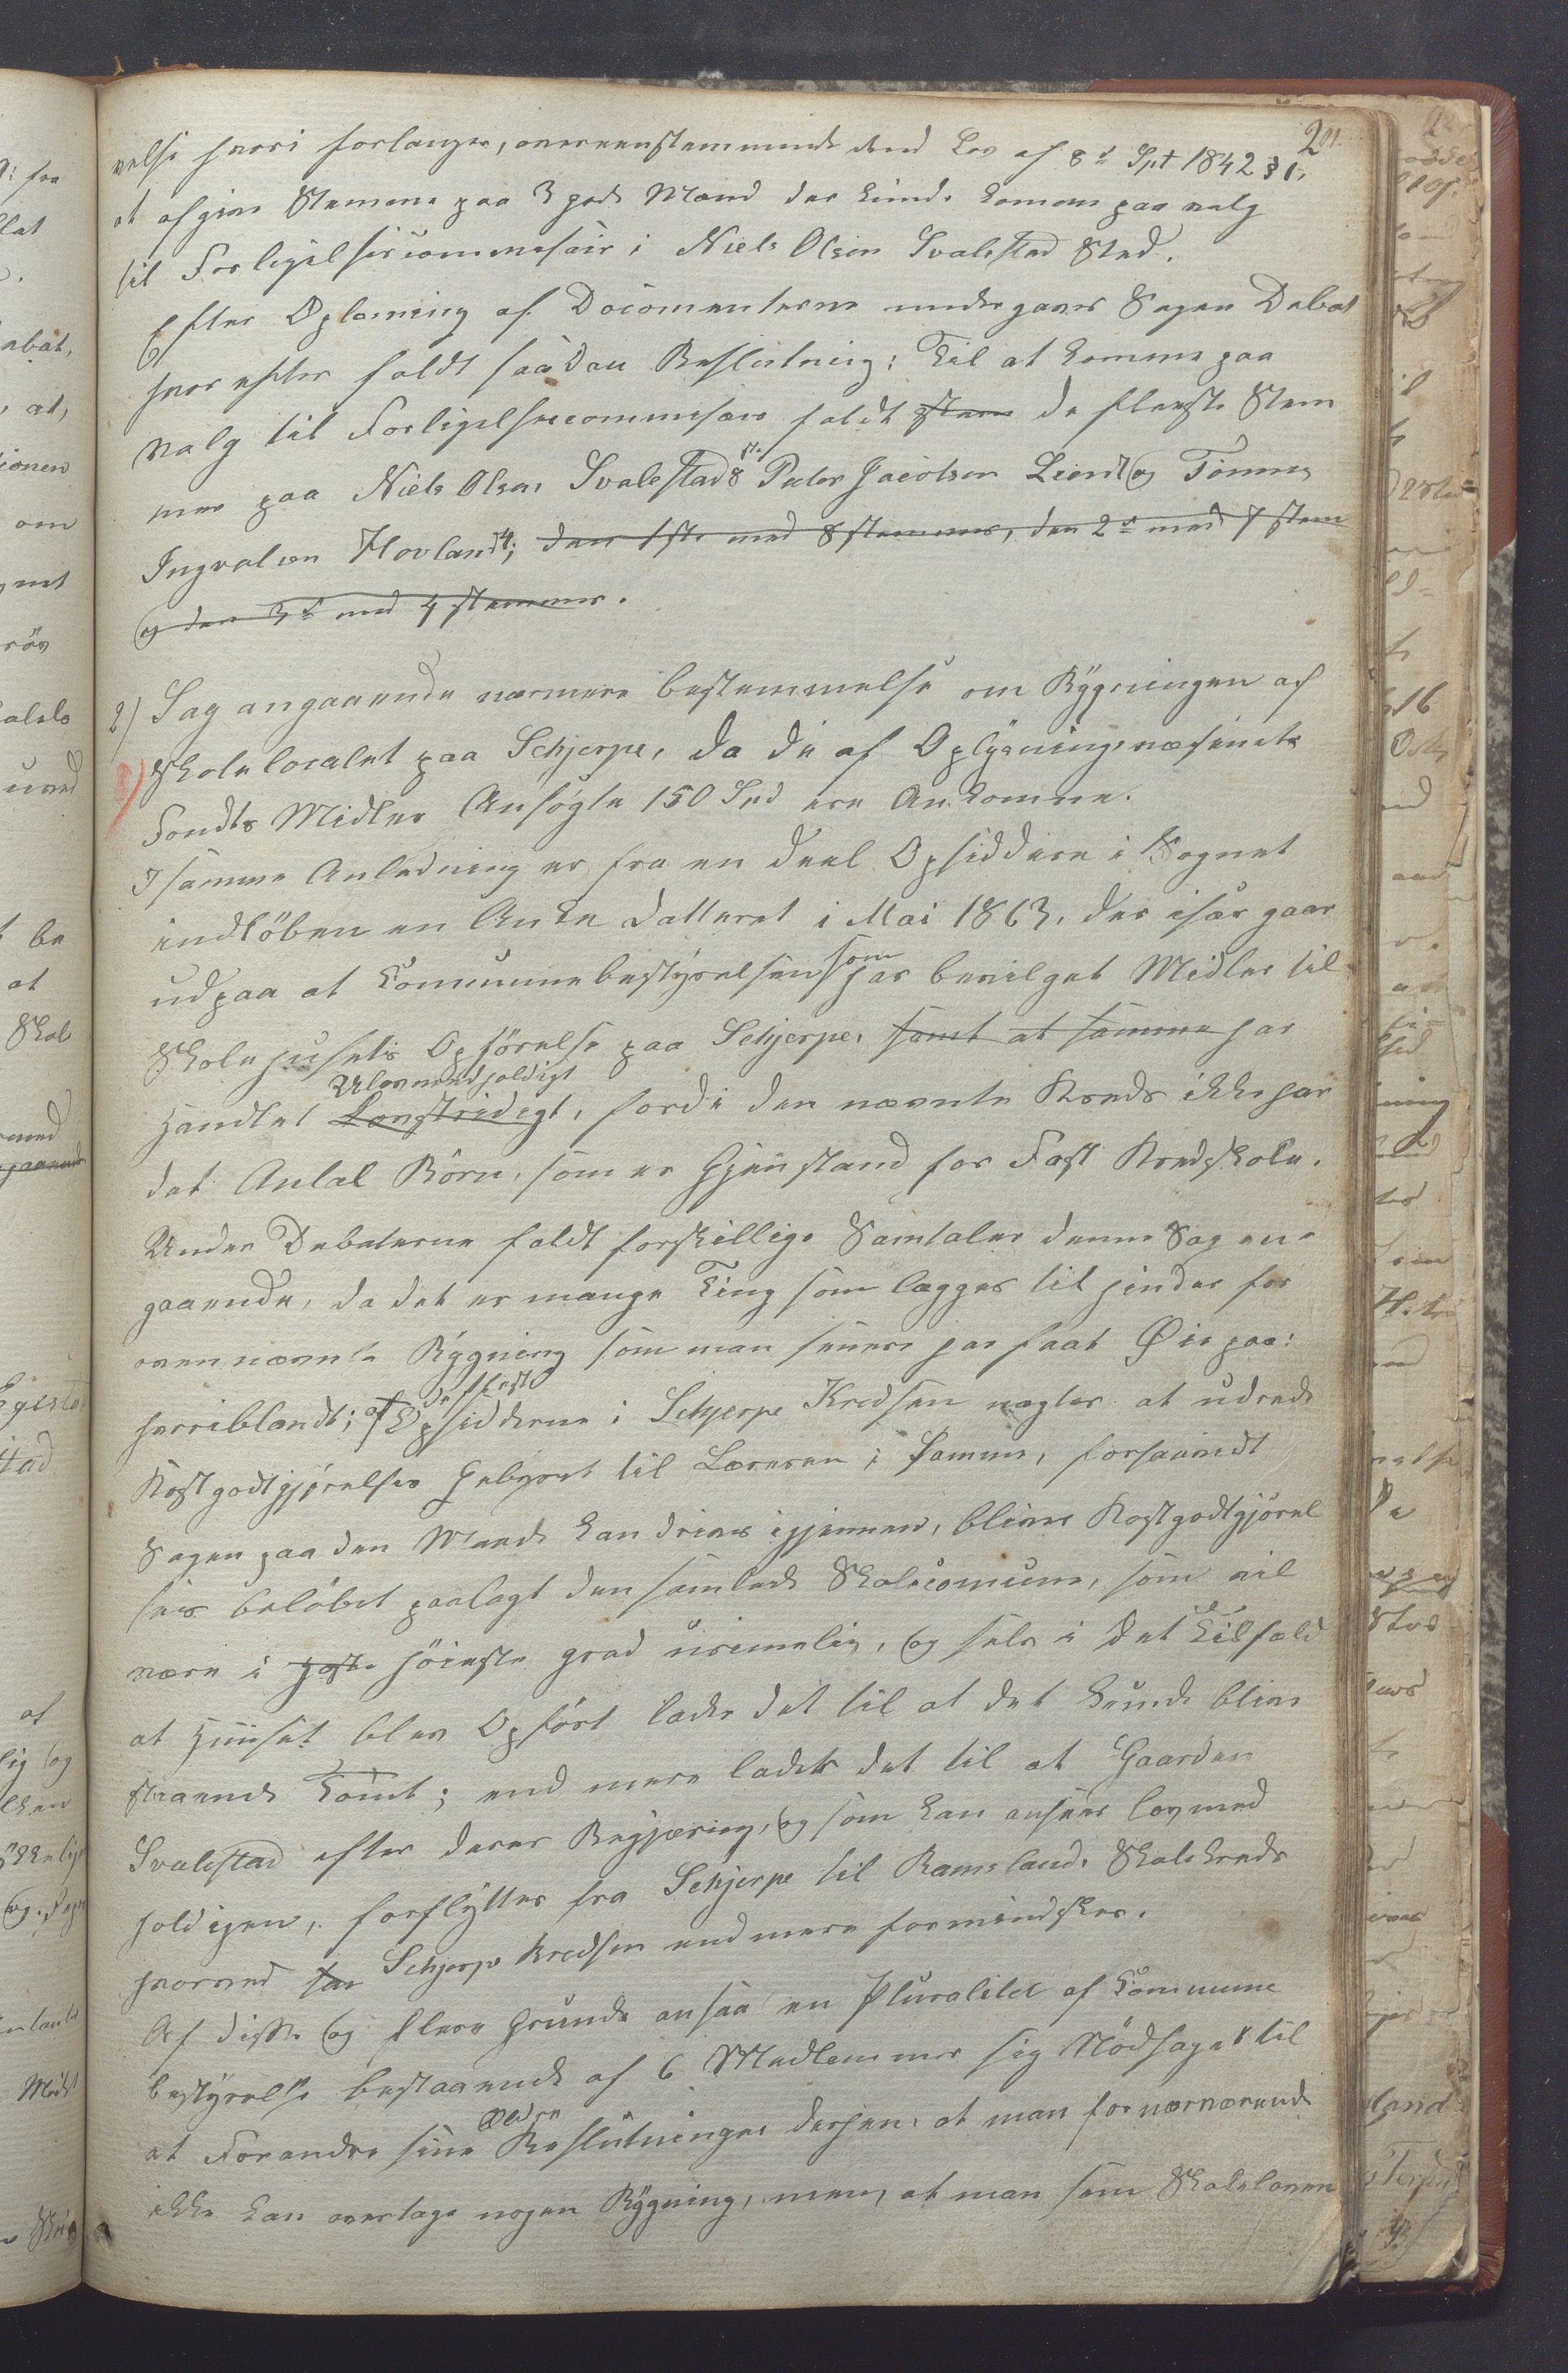 201.
velse heri forlanges, overeenstemmende med Lov af 8d Spt 1842 § 1,
at afgive Stemme paa 3 gode Mænd der kunde komme paa valg
til Forligelsescommesair i Niels Olsen Svalestad Sted.
Efter Oplæsning af Documenterne undergaves Sagen Debat
hvorefter faldt saadan Beslutning: Til at komme paa
valg til Forligelsescommesair faldt stem de fleste Stem
mer paa Niels Olsen Svalestad 8 st. Peder Jacobsen Liend 7 og Tønnes
Ingvalsen Hovland 4; den 1ste med 8 stemmer, den 2d med 7 stem
og den 3d med 4 stemmer.
2) Sag angaaende nærmere bestemmelse om Bygningen af
Skolelocalet paa Schjerpe, da de af Oplysningsvæsenets
Fondts Midler Ansøgte 150 Spd ere Ankomne.
I samme Anledning er fra en deel Opsiddere i Sognet
indløben en Anke datteret i Mai 1863, der især gaar
ud paa at Communebestyrelsen som har bevilget Midler til
Skolehusets Opførelse paa Schjerpe, samt at samme har
handlet Lovstridigt Ulovmedholdigt, fordi den nævnte Kreds ikke har
det Antal Børn, som er Gjenstand for Fast Kredsskole.
Under Debaterne faldt forskillige Samtaler denne Sag an-
gaaende, da det er mange Ting som lægges til hinder for
ovennævnte Bygning som man senere har faat Øie paa:
heriblandt; at de fleste Opsidderne i Schjerpe Kredsen nægter at udrede
Kostgodtgjørelses Gebyret til Læreren i Samme, forsaavidt
Sagen paa den Maade kan drives igjennem, blive Kostgodtgjørel
ses beløbet paalagt den samlede Skolecomune, som vil
være i høste høieste grad urimelig, og selv i det Tilfæld
at Huuset blev Opført lader det til at det kunde blive
staaende Tomt; end mere lader det til at Gaarden
Svalestad efter deres Begjæring, og som kan ansees lovmed
holdigen, forflyttes fra Schjerpe til Ramslands Skolekreds
hvorved saa Schjerpe Kredsen end mere formindskes.
Af disse og flere Grunde ansaa en Pluralitet af Commune
bestyrelse bestaaende af 6 Medlemmer sig Nødsaget til
at Forandre sine Ældre Beslutninger derhen: at man for nærværende
ikke kan overtage nogen Bygning, men, at man som Skoleloven